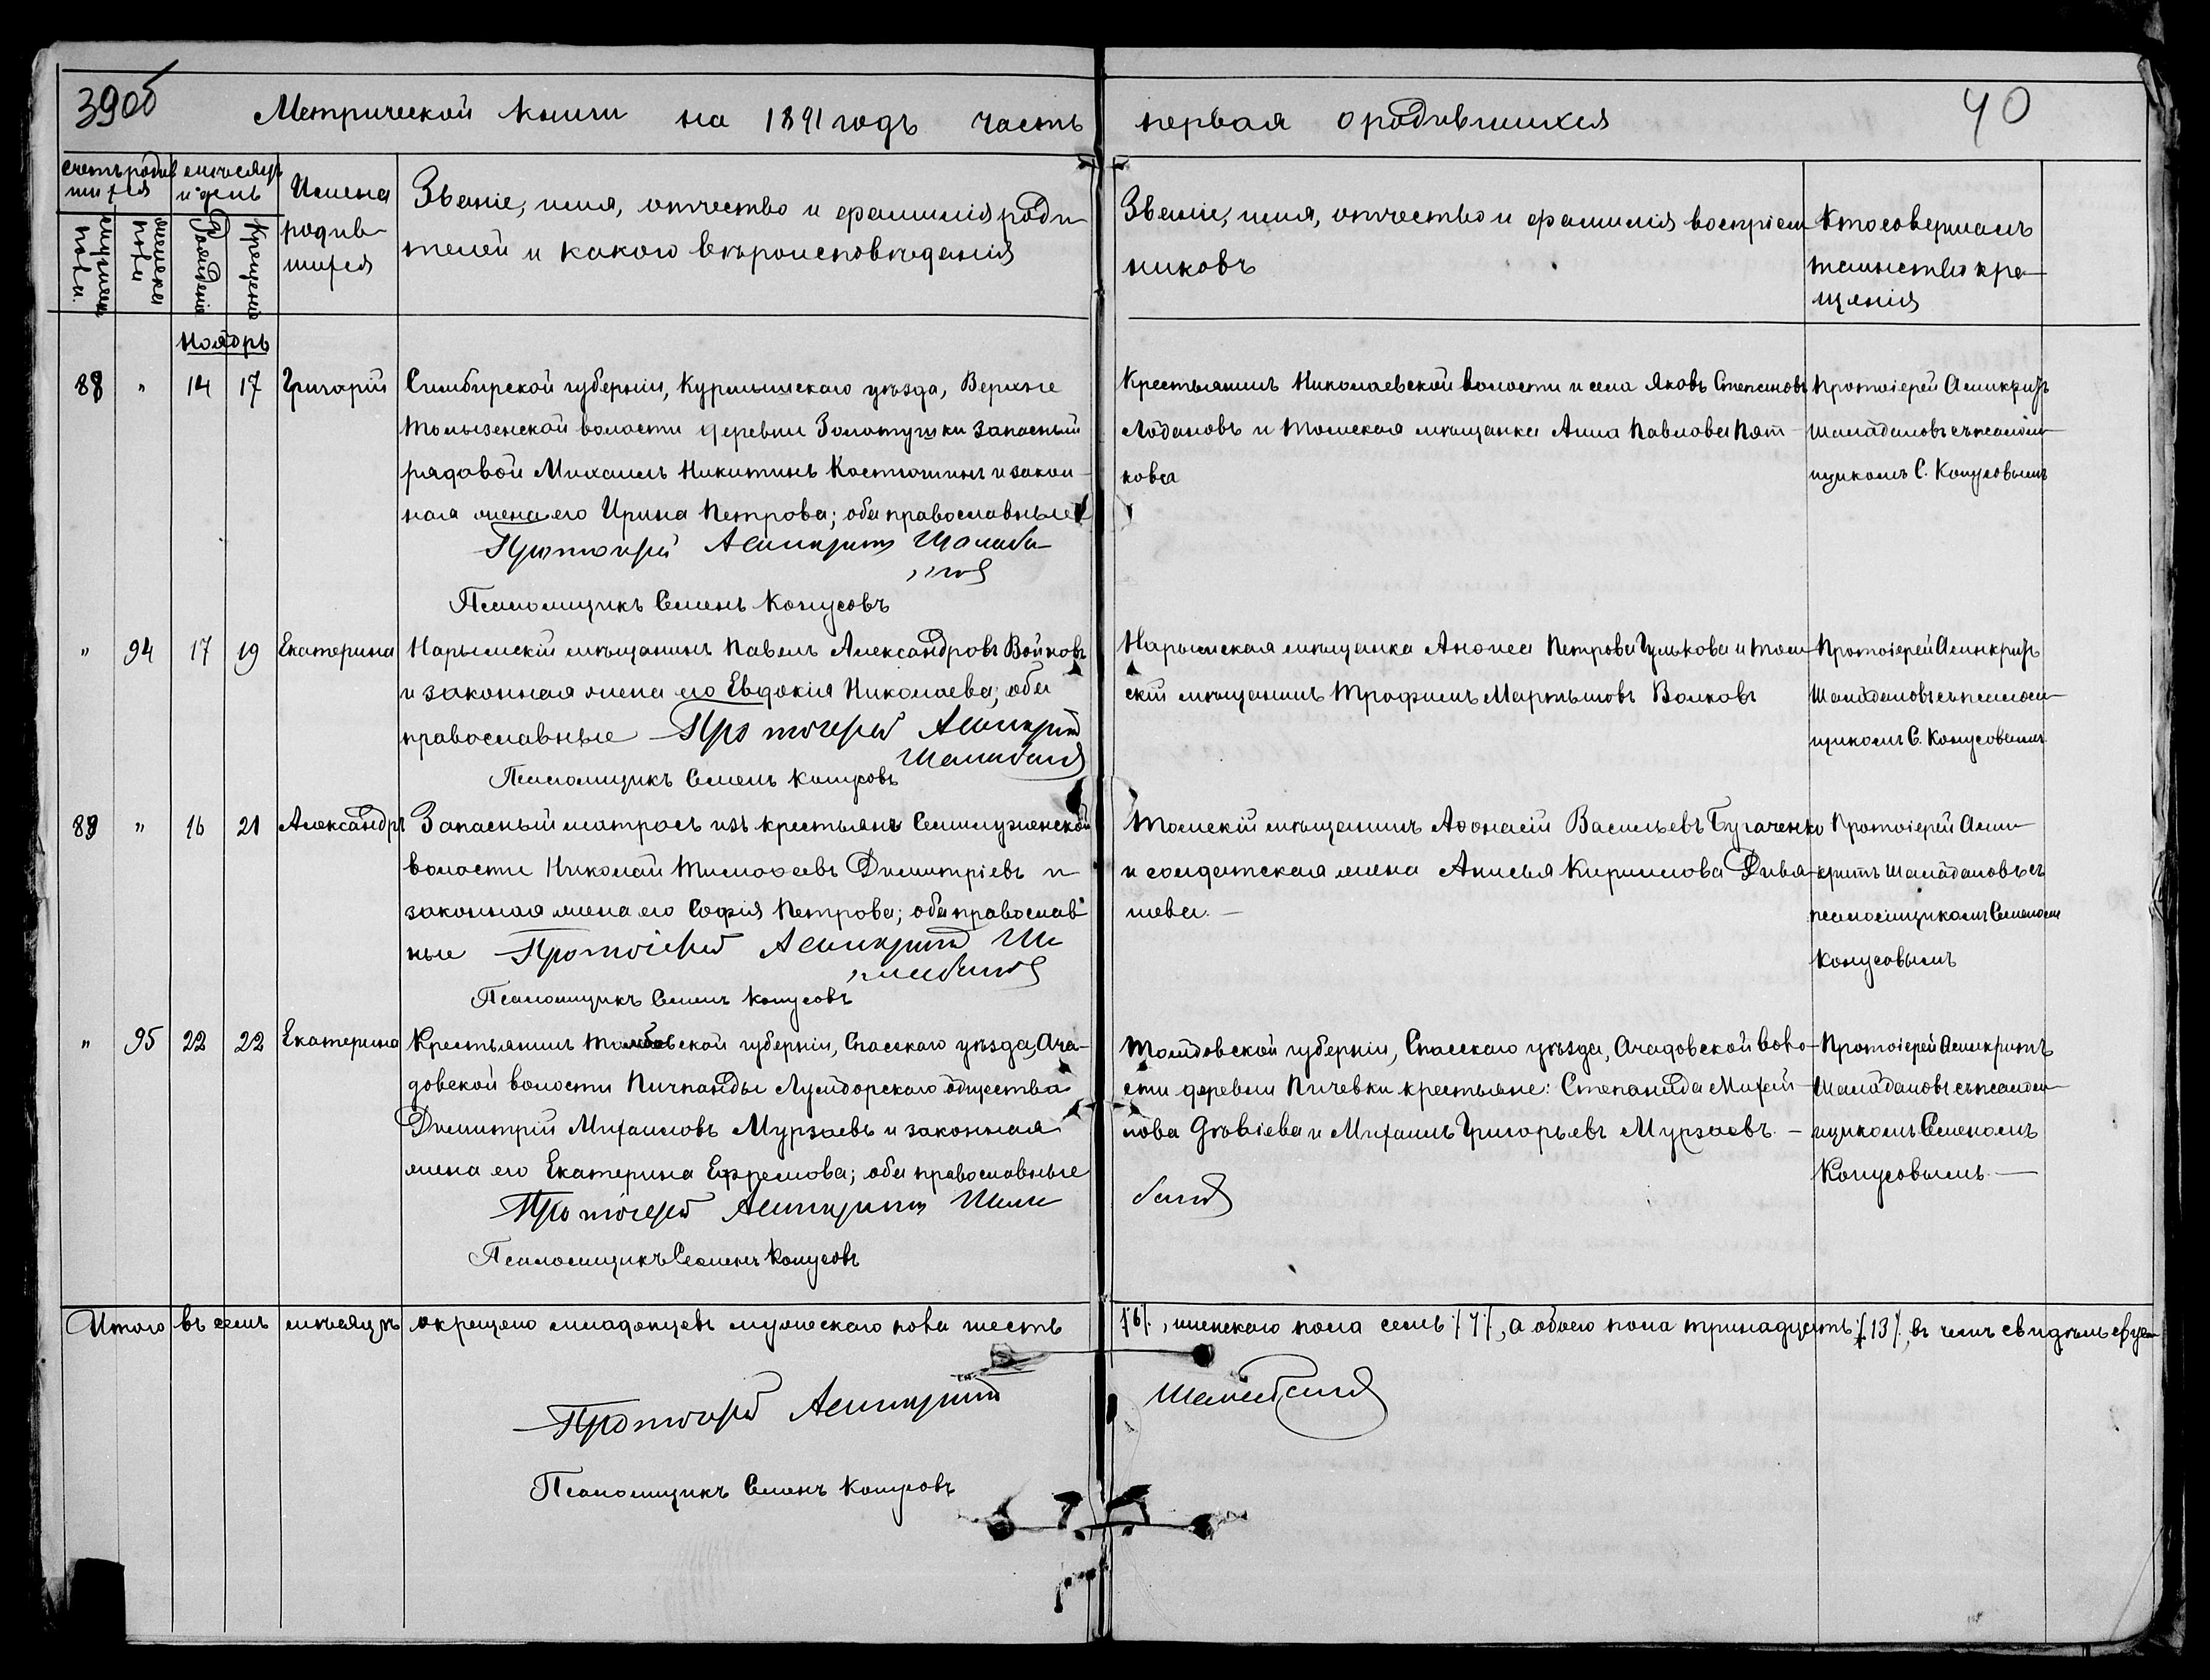 39об
40
Метрической книги на 1891 годъ часть первая о родившихся
Счетъ родившихся
мѣсяцъ и день
Имена родившихся
Званіе, имя, отчество и фамилія роди-
телей и какого вѣроисповѣданія
Званіе, имя, отчество и фамилія воспріем
никовъ
Кто совершалъ
таинство кре-
щенія
мужска пола.
женска пола
Рожденія
Крещенія
Ноябрь
88 " 14 17 Григорій
Симбирской губерніи, Курмышскаго уѣзда, Верхне
Талызенской волости деревни Золотушки запасный
рядовой Михаилъ Никитинъ Костюнинъ и закон-
ная жена его Ирина Петрова; оба православные
Протоіерей Асинкритъ Шалаба
новъ
Псаломщикъ Семенъ Конусовъ
Крестьянинъ Николаевской волости и села Яковъ Степановъ
Лобановъ и Томская мѣщанка Анна Павлова Пят-
кова
Протоіерей Асинкритъ
Шалабановъ съ псаломщ
щикомъ С. Конусовымъ
" 94 17 19 Екатерина
Нарымскій мѣщанинъ Павелъ Александровъ Войновъ
и законная жена его Евдокія Николаева; оба
православные Протоіерей Асинкритъ
Шалабановъ
Псаломщикъ Семенъ Конусовъ
Нарымская мѣщанка Анѳиса Петрова Гулькова и Том
скій мѣщанинъ Трофимъ Мартыновъ Волковъ
Протоіерей Асинкритъ
Шалабановъ съ псалом
щикомъ С. Конусовымъ.
89 " 16 21 Александръ
Запасный матросъ изъ крестьянъ Семилуженской
волости Николай Тимоѳеевъ Димитріевъ и
законная жена его Софія Петрова; оба православ
ные Протоіерей Асинкритъ Ша
лабановъ
Псаломщикъ Семенъ Конусовъ
Томскій мѣщанинъ Аѳонасій Васильевъ Бугаченко
и солдатская жена Анисья Кириллова Дивя-
шева. —
Протоіерей Асин
критъ Шалабановъ съ
псаломщикомъ Семеномъ
Конусовымъ
" 95 22 22 Екатерина
Крестьянинъ Тамбовской губерніи, Спасскаго уѣзда, Ача-
довской волости Пичпанды Лундорскаго общества
Димитрій Михаиловъ Мурзаевъ и законная
жена его Екатерина Ефремова; оба православные
Протоіерей Асинкритъ Шала
бановъ
Псаломщикъ Семенъ Конусовъ
Тамбовской губерніи, Спасскаго уѣзда, Ачадовской воло-
сти деревни Пичевки крестьяне: Степанида Михай-
лова и Михаилъ Григорьевъ Мурзаевъ. —
Протоіерей Асинкритъ
Шалабановъ съ псалом
щикомъ Семеномъ
Конусовымъ. —
Итого въ семъ мѣсяцѣ окрещено младенцевъ мужескаго пола шесть /6/., женскаго пола семь /7/, а обоего пола тринадцать /13/, въ чемъ свидѣтельствуемъ
Протоіерей Асинкритъ Шалабановъ
Псаломщикъ Семенъ Конусовъ